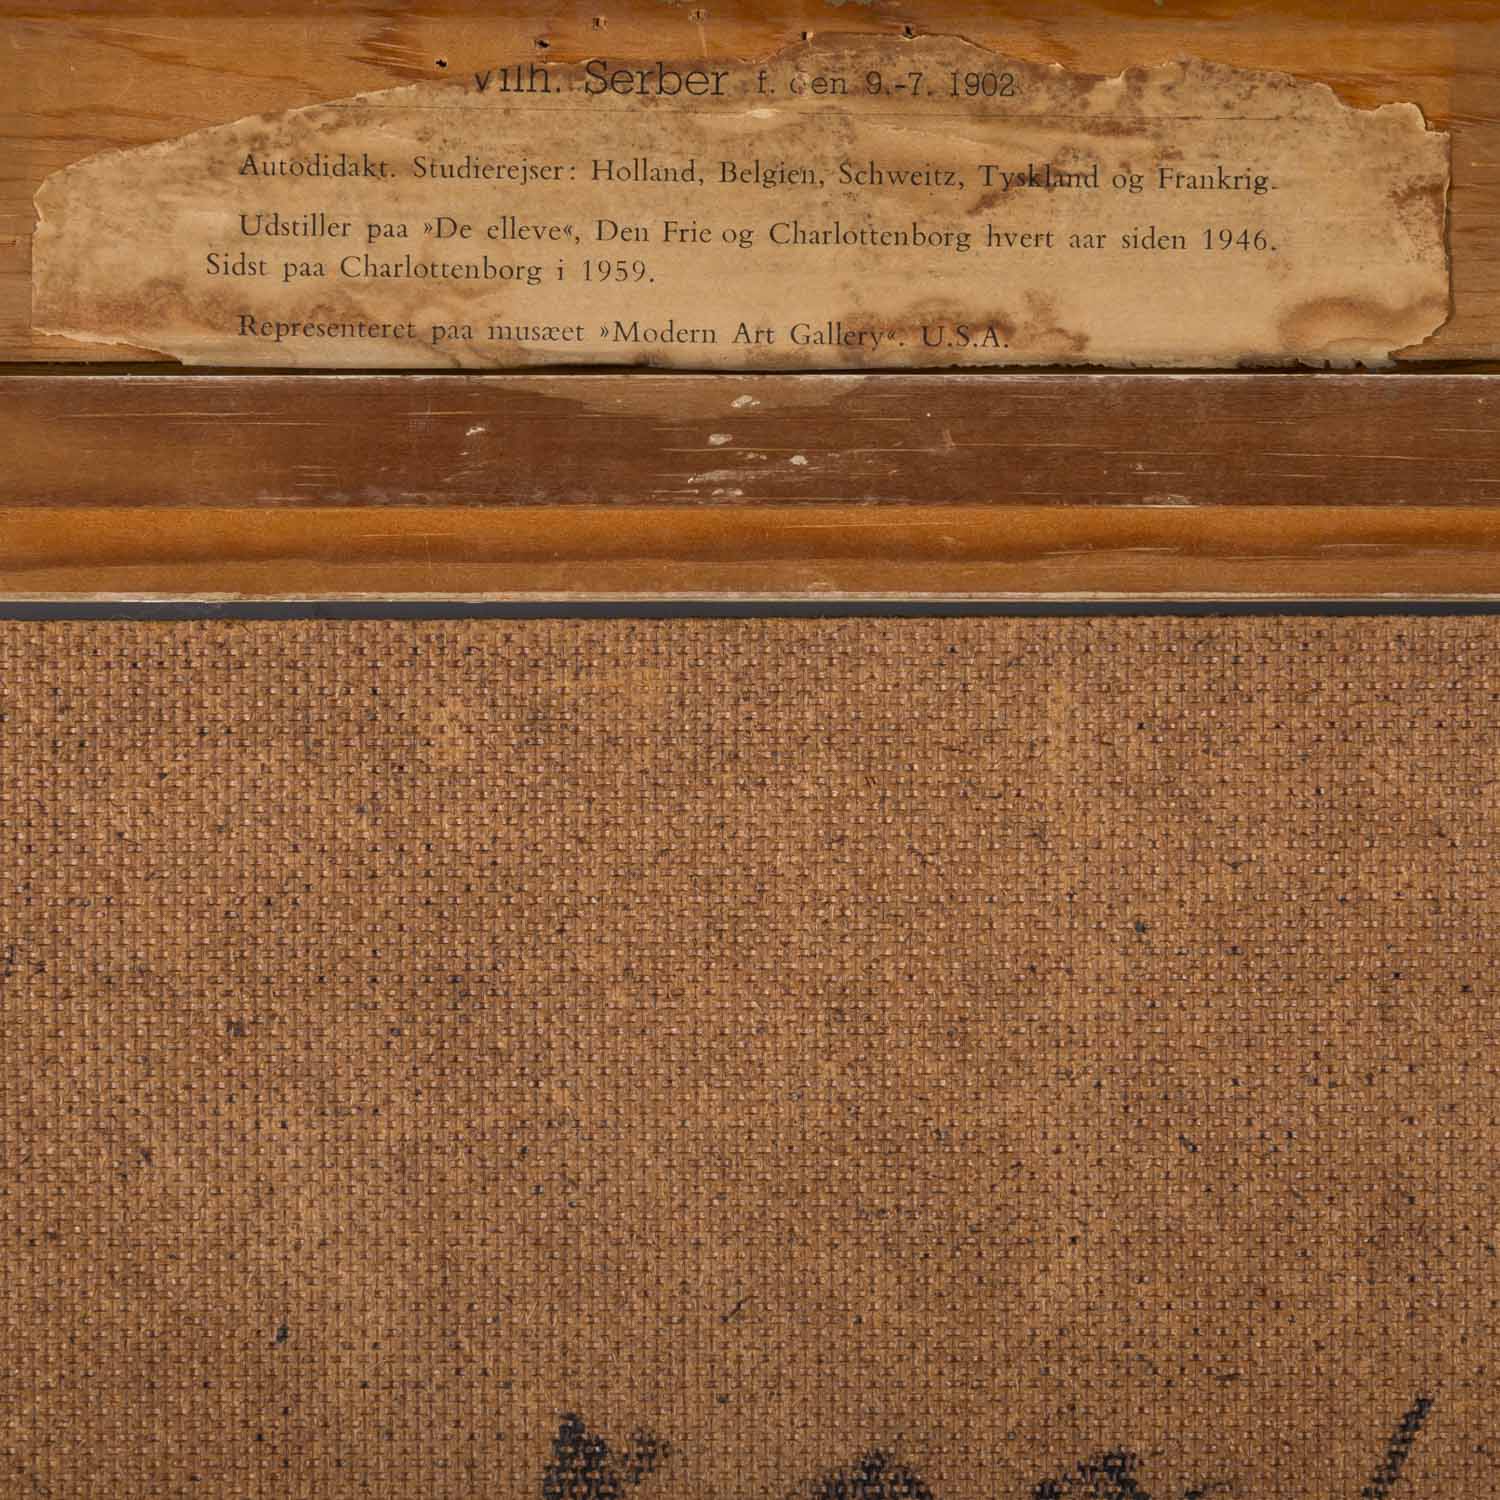 Vilh. Serber f. den 9.-7. 1902
Autodidakt. Studierejser: Holland, Belgien, Schweitz, Tyskland og Frankrig.
Udstiller paa »De elleve«, Den Frie og Charlottenborg hvert aar siden 1946.
Sidst paa Charlottenborg i 1959.
Representeret paa musæet »Modern Art Gallery«. U.S.A.